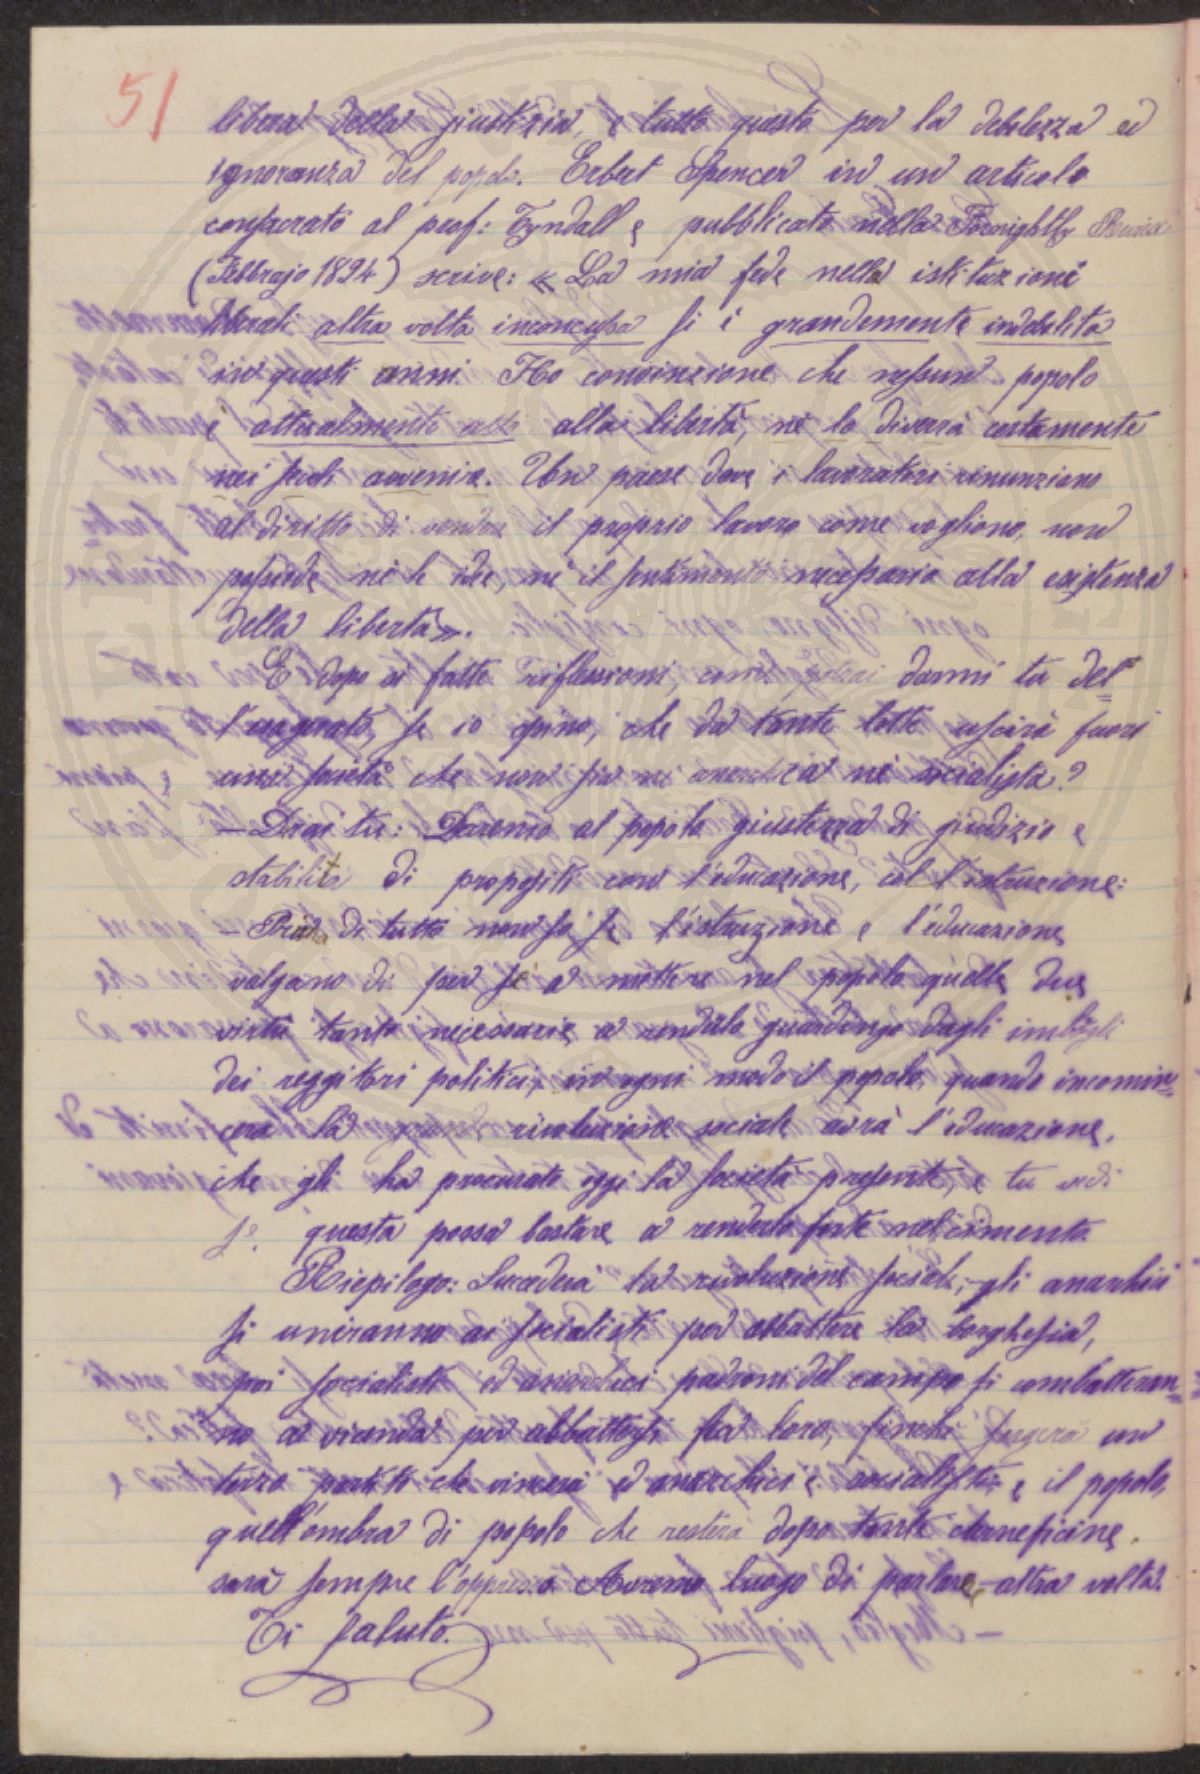 51
libera della giustizia, e tutto questo per la debolezza ed
ignoranza del popolo. Erbert Spencer in un articolo
consacrato al prof: Tyndall e pubblicato nella Fornightly Review
(Febbrajo 1894) scrive: « La mia fede nelle istituzioni
liberali altra volta inconcussa si è grandemente indebolita
in questi anni. Ho convinzione che nessun popolo
è attualmente atto alla libertà, nè lo diverrà certamente
nei secoli avvenire. Un paese dove i lavoratori rinunziano
al diritto di vendere il proprio lavoro come vogliono, non
possiede nè le idee, nè il sentimento necessario alla esistenza
della libertà».
E dopo sì fatte riflessioni, come potrai darmi tu del=
l'esagerato, se io opino, che da tante lotte uscirà fuori
una società che non sia nè anarchica nè socialista?
— Dirai tu: Daremo al popolo giustezza di giudizio e
stabilità di propositi con l'educazione, col l'istruzione:
— Prima di tutto non so se l'istruzione e l'educazione
valgano di per sè a mettere nel popolo quelle due
virtù tanto necessarie a renderlo guardingo dagli imbrogli
dei reggitori politici; in ogni modo il popolo, quando incomin=
cerà la rivoluzione sociale avrà l'educazione,
che gli ha procurato oggi la società presente, e tu vedi
se questa possa bastare a renderlo forte nel cimento.
Riepilogo: Succederà la rivoluzione sociale; gli anarchici
si uniranno ai socialisti per abbattere la borghesia,
poi socialisti ed anarchici padroni del campo si combatteran=
no a vicenda per abbattersi fra loro, finchè sorgerà un
terzo partito che vincerà ed anarchici e socialisti; e il popolo,
quell'ombra di popolo che resterà dopo tante carneficine,
sarà sempre l'oppresso. Avremo luogo di parlare altra volta.
Ti saluto.